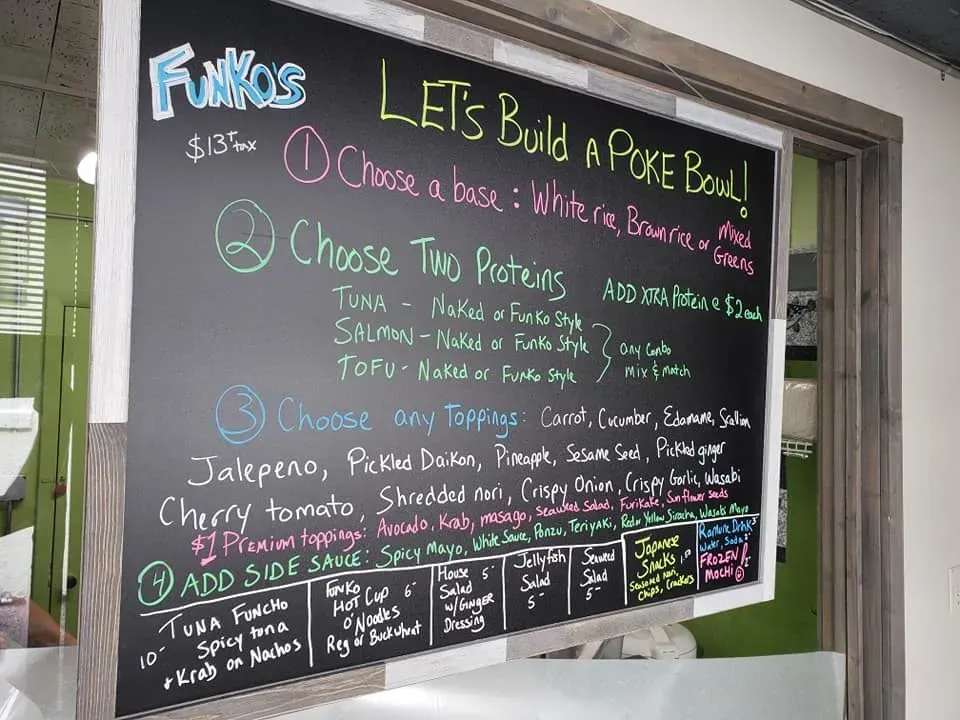 FUNKO'S
LET'S Build A POKE BOWL!
$13 + tax
① Choose a base : White rice, Brown rice or Mixed Greens
② Choose TWO Proteins
ADD XTRA Protein @ $2 each
TUNA - Naked or Funko Style
SALMON - Naked or Funko Style
TOFU - Naked or Funko Style
any combo
mix & match
③ Choose any Toppings: Carrot, Cucumber, Edamame, Scallion
Jalepeno, Pickled Daikon, Pineapple, Sesame Seed, Pickled ginger
Cherry tomato, Shredded nori, Crispy Onion, Crispy Garlic, Wasabi
$1 Premium toppings: Avocado, Krab, masago, Seaweed Salad, Furikake, Sunflower seeds
④ ADD SIDE SAUCE: Spicy Mayo, White Sauce, Ponzu, Teriyaki, Red or Yellow Siracha, Wasabi Mayo
TUNA FUNCHO
10- Spicy tuna
+ Krab on Nachos
FUNKO 6-
HOT CUP
O' Noodles
Reg or Buckwheat
House 5-
Salad
w/GINGER
Dressing
Jellyfish
Salad
5-
Seaweed
Salad
5-
Japanese
Snacks
Seasoned Nori,
Chips, Crackers
Ramune Drink
Water, Soda
FROZEN
MOCHI